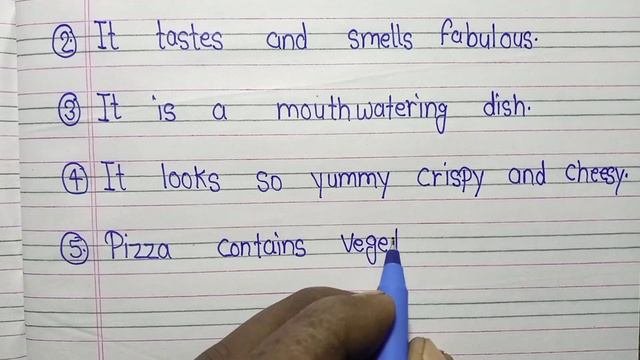 ② It tastes and smells fabulous.
③ It is a mouthwatering dish.
④ It looks so yummy crispy and cheesy.
⑤ Pizza contains